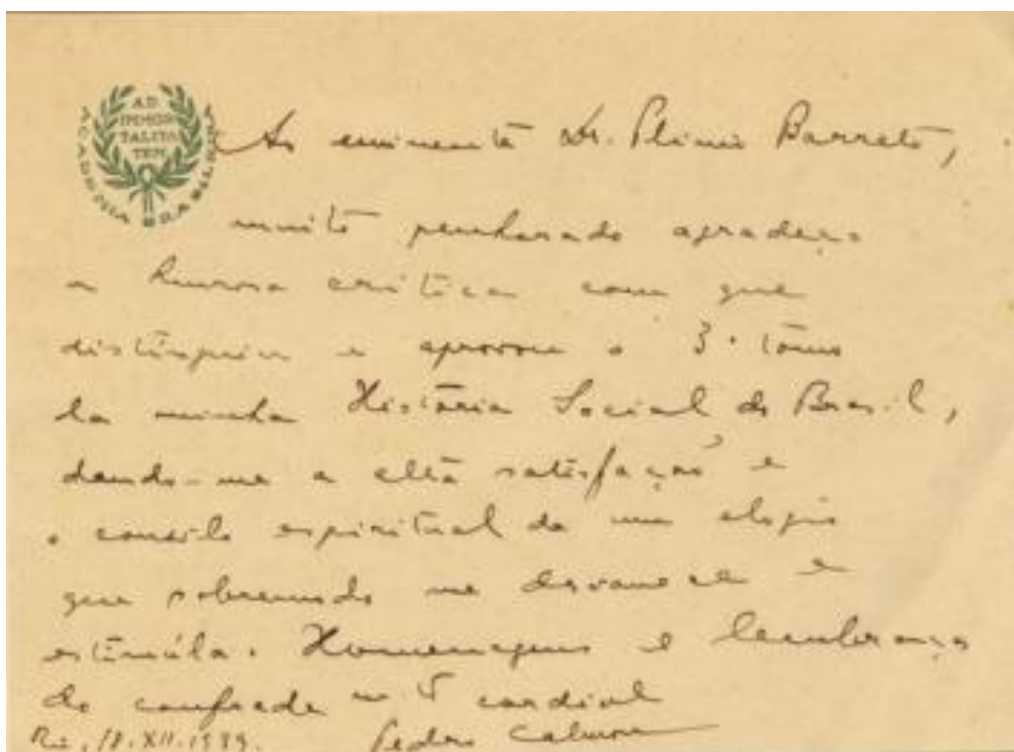 AD
IMMOR
TALITA
TEM
ACADEMIA BRASILEIRA
Ao eminente Dr. Plinio Barreto,
muito penhorado agradeço
a honrosa critica com que
distinguiu e aprovou o 3º tômo
da minha História Social do Brasil,
dando-me a alta satisfação e
o consôlo espiritual de um elogio
que sobremodo me desvanece e
estimúla. Homenagens e lembranças
do confrade mto cordial
Rio, 18.XII.1939. Pedro Calmon